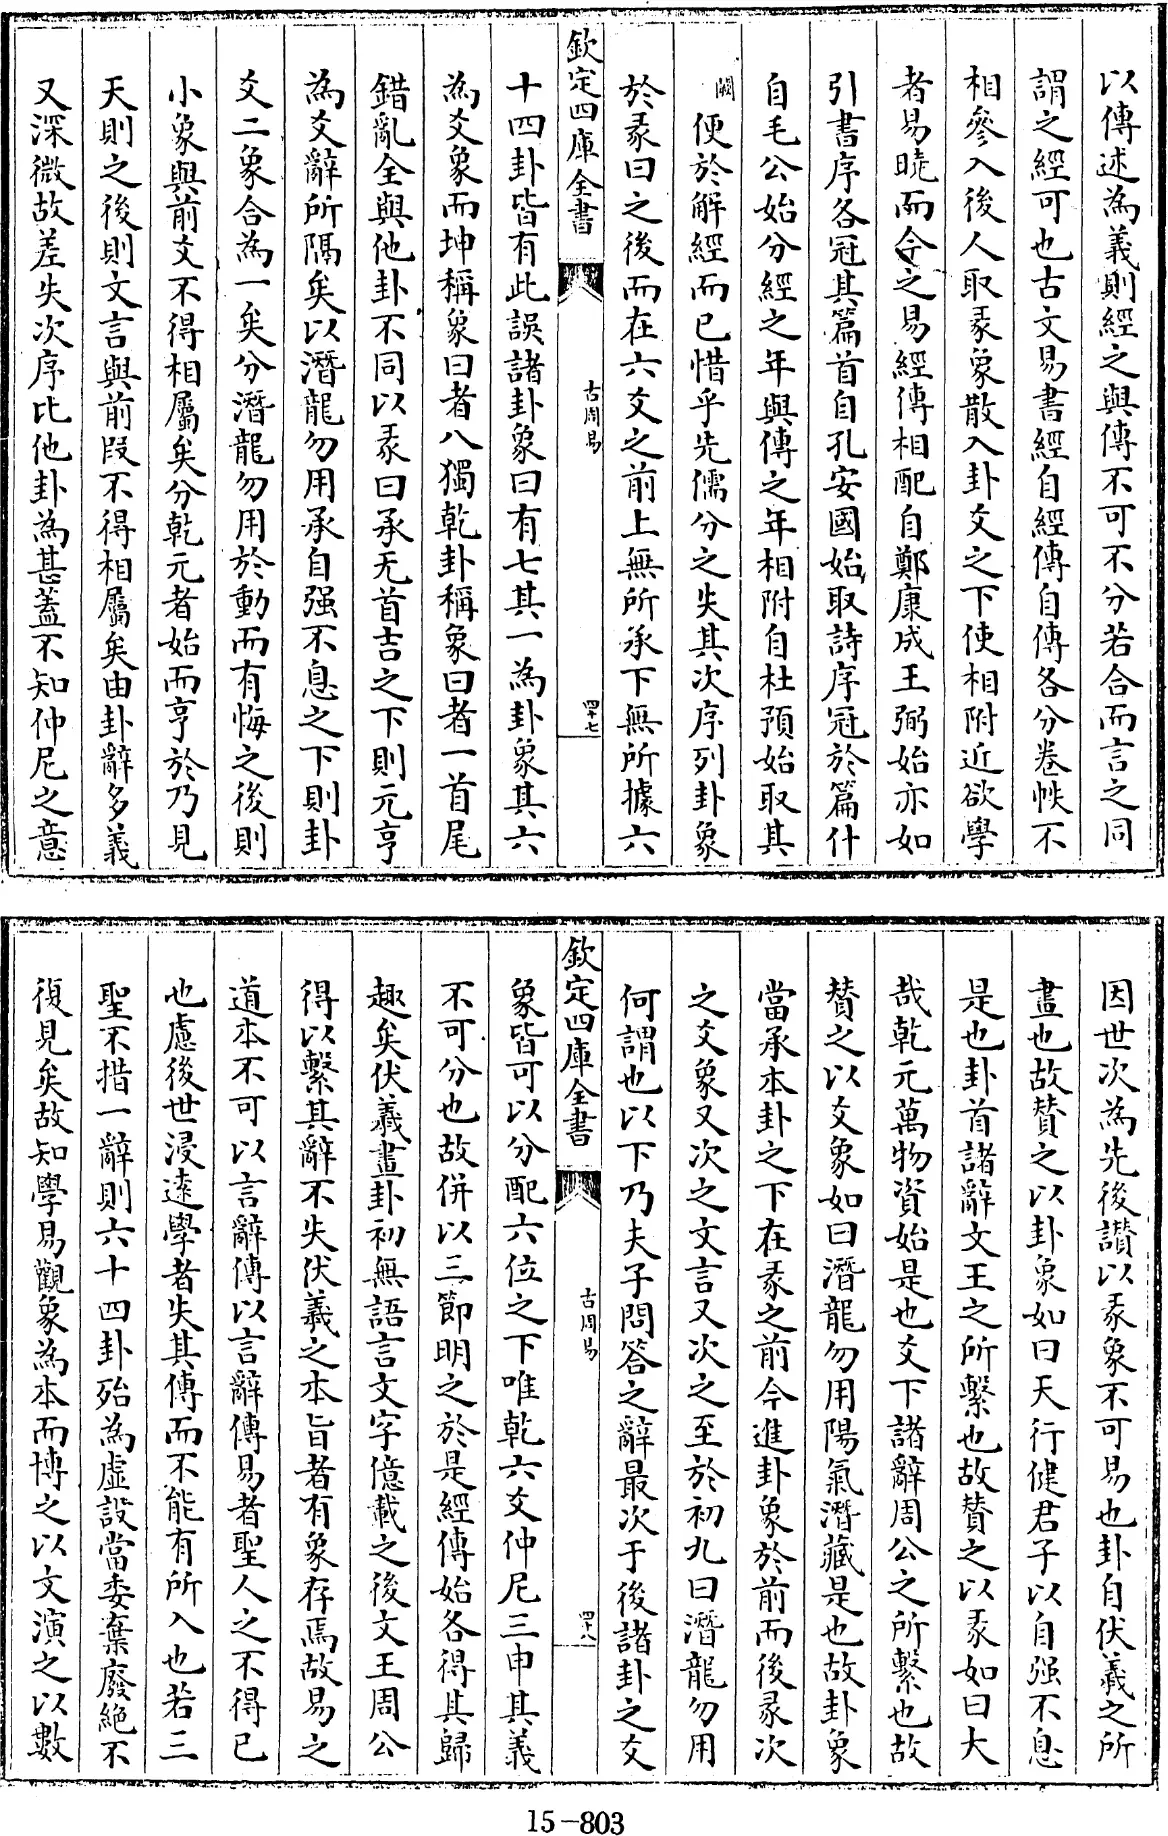 以傳述為義則經之與傳不可不分若合而言之同
謂之經可也古文易書經自經傳自傳各分卷帙不
相參入後人取彖象散入卦爻之下使相附近欲學
者易曉而今之易經傳相配自鄭康成王弼始亦如
引書序各冠其篇首自孔安國始取詩序冠於篇什
自毛公始分經之年與傳之年相附自杜預始取其
闕便於解經而已惜乎先儒分之失其次序列卦象
於彖曰之後而在六爻之前上無所承下無所據六
欽定四庫全書
古周易
四十七
十四卦皆有此誤諸卦象曰有七其一為卦象其六
為爻象而坤稱象曰者八獨乾卦稱象曰者一首尾
錯亂全與他卦不同以彖曰承无首吉之下則元亨
為爻辭所隔矣以潛龍勿用承自强不息之下則卦
爻二象合為一矣分潛龍勿用於動而有悔之後則
小象與前文不得相屬矣分乾元者始而亨於乃見
天則之後則文言與前段不得相屬矣由卦辭多義
又深微故差失次序比他卦為甚蓋不知仲尼之意
因世次為先後讃以彖象不可易也卦自伏羲之所
畫也故賛之以卦象如曰天行健君子以自强不息
是也卦首諸辭文王之所繫也故賛之以彖如曰大
哉乾元萬物資始是也爻下諸辭周公之所繫也故
賛之以爻象如曰潛龍勿用陽氣潛藏是也故卦象
當承本卦之下在彖之前今進卦象於前而後彖次
之爻象又次之文言又次之至於初九曰潛龍勿用
何謂也以下乃夫子問答之辭最次于後諸卦之爻
欽定四庫全書
古周易
四十八
象皆可以分配六位之下唯乾六爻仲尼三申其義
不可分也故併以三節明之於是經傳始各得其歸
趣矣伏羲畫卦初無語言文字億載之後文王周公
得以繫其辭不失伏羲之本旨者有象存焉故易之
道本不可以言辭傳以言辭傳易者聖人之不得已
也慮後世浸逺學者失其傳而不能有所入也若三
聖不措一辭則六十四卦殆為虛設當委棄廢絶不
復見矣故知學易觀象為本而博之以文演之以數
15-803